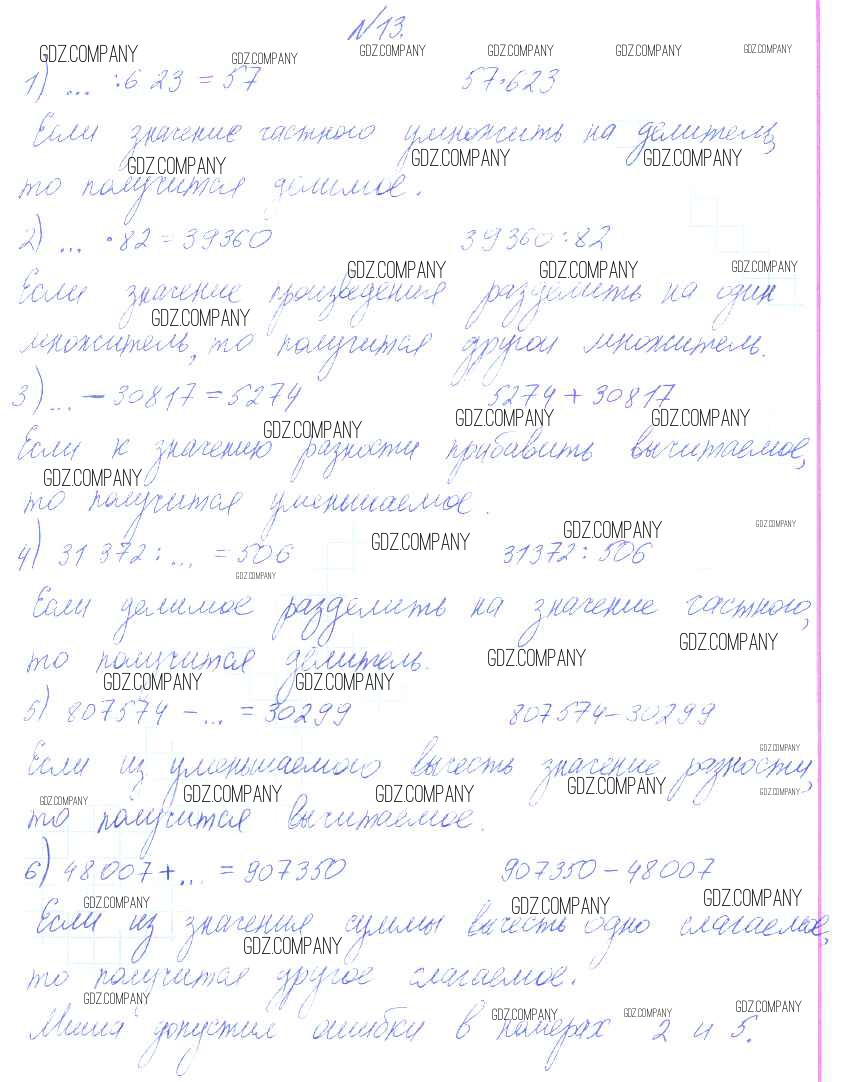 №13.
GDZ.COMPANY GDZ.COMPANY GDZ.COMPANY GDZ.COMPANY GDZ.COMPANY GDZ.COMPANY
1) ... :623 = 57 57·623
Если значение частного умножить на делитель,
GDZ.COMPANY GDZ.COMPANY GDZ.COMPANY
то получится делимое.
2) ... · 82 = 39360 39360:82
GDZ.COMPANY GDZ.COMPANY GDZ.COMPANY
Если значение произведения разделить на один
GDZ.COMPANY
множитель, то получится другой множитель.
3) ... - 30817 = 5274 5274 + 30817
GDZ.COMPANY GDZ.COMPANY GDZ.COMPANY
Если к значению разности прибавить вычитаемое,
GDZ.COMPANY
то получится уменьшаемое.
GDZ.COMPANY GDZ.COMPANY GDZ.COMPANY
4) 31 372 : ... = 506 31372 : 506
GDZ.COMPANY
Если делимое разделить на значение частного,
GDZ.COMPANY GDZ.COMPANY
то получится делитель.
GDZ.COMPANY GDZ.COMPANY
5) 807574 - ... = 30299 807574-30299
GDZ.COMPANY
Если из уменьшаемого вычесть значение разности,
GDZ.COMPANY GDZ.COMPANY GDZ.COMPANY GDZ.COMPANY GDZ.COMPANY
то получится вычитаемое.
6) 48007+... = 907350 907350-48007
GDZ.COMPANY GDZ.COMPANY GDZ.COMPANY
Если из значения суммы вычесть одно слагаемое,
GDZ.COMPANY
то получится другое слагаемое.
GDZ.COMPANY GDZ.COMPANY GDZ.COMPANY GDZ.COMPANY
Миша допустил ошибки в номерах 2 и 5.